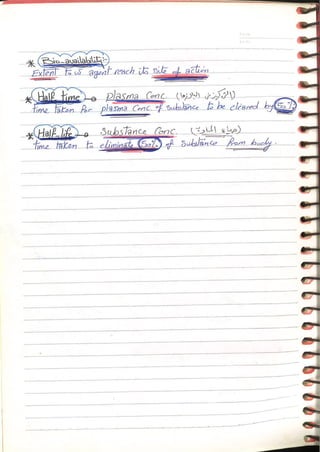 * Bio-availability:-
Extent to w agent reach its site of action
* Half time → Plasma Conc.
time taken for plasma Conc. of substance to be cleared by 50%
* Half life → Substance Conc.
time taken to eliminate 50% of substance from body.